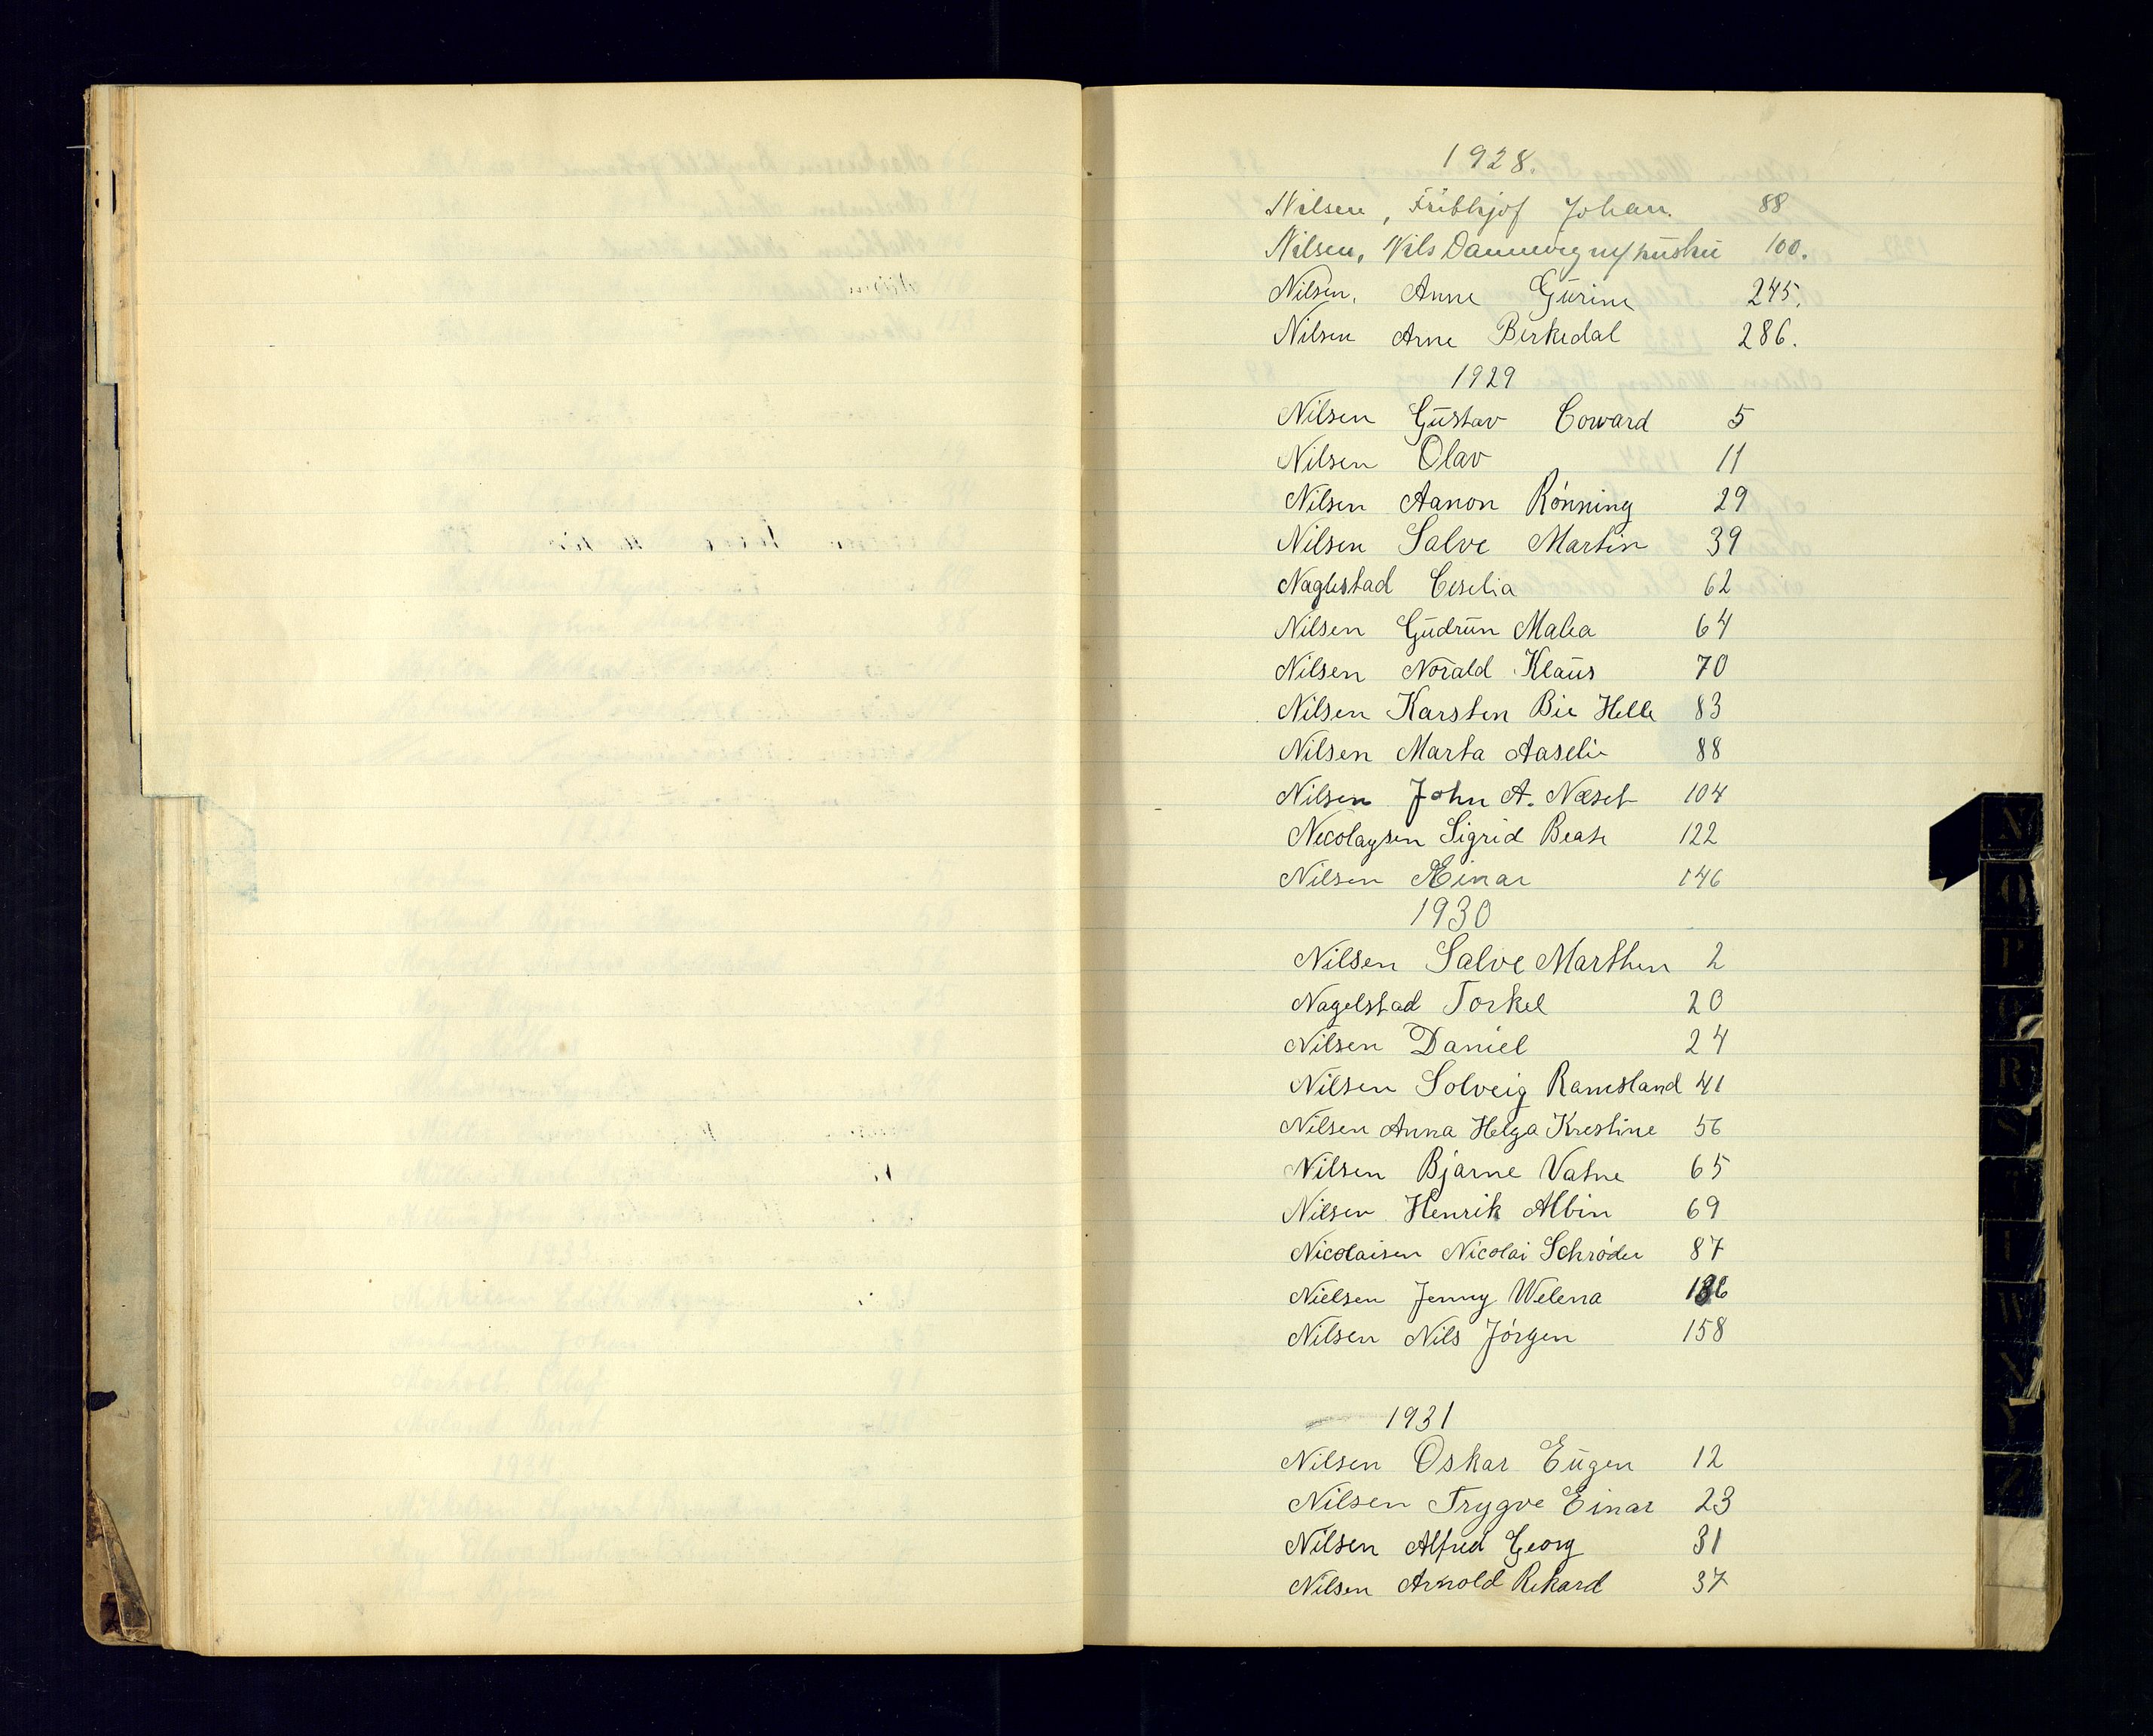 1928.
Nilsen, Fribhjof Johan. 88
Nilsen, Nils Dannevig m/hustru 100.
Nilsen, Anne Gurine 245.
Nilsen Arne Birkedal 286.
1929
Nilsen Gustav Coward 5
Nilsen Olav 11
Nilsen Aanon Rönning 29
Nilsen Salve Martin 39
Naglestad Ceselia 62
Nilsen Gudrun Malea 64
Nilsen Norald Klaus 70
Nilsen Karsten Bie Helle 83
Nilsen Marta Aaseli 88
Nilsen John A. Næset 104
Necolaysen Sigrid Beate 122
Nilsen Einar 146
1930
Nilsen Salve Marthen 2
Nagelstad Torkel 20
Nilsen Daniel 24
Nilsen Solveig Ramsland 41
Nilsen Anna Helga Krestine 56
Nilsen Bjarne Vatne 65
Nilsen Henrik Albin 69
Nicolaisen Nicolai Schröder 87
Nielsen Jenny Welena
Nilsen Nils Jörgen 158
1931
Nilsen Oskar Eugen 12
Nilsen Trygve Einar 23
Nilsen Alfred Georg 31
Nilsen Arnold Rikard 37